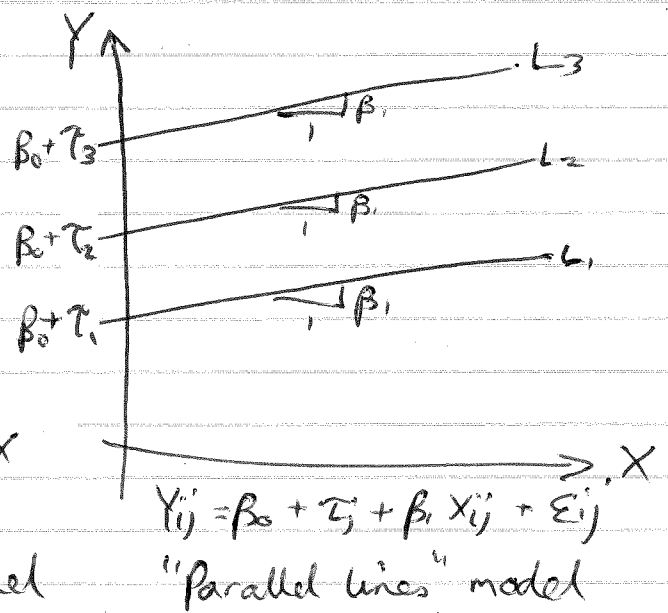 Y
L3
β1
1
β0 + τ3
L2
β1
1
β0 + τ2
L1
β1
1
β0 + τ1
X
X
Yij = β0 + τj + β1 Xij + εij
el "Parallel lines" model